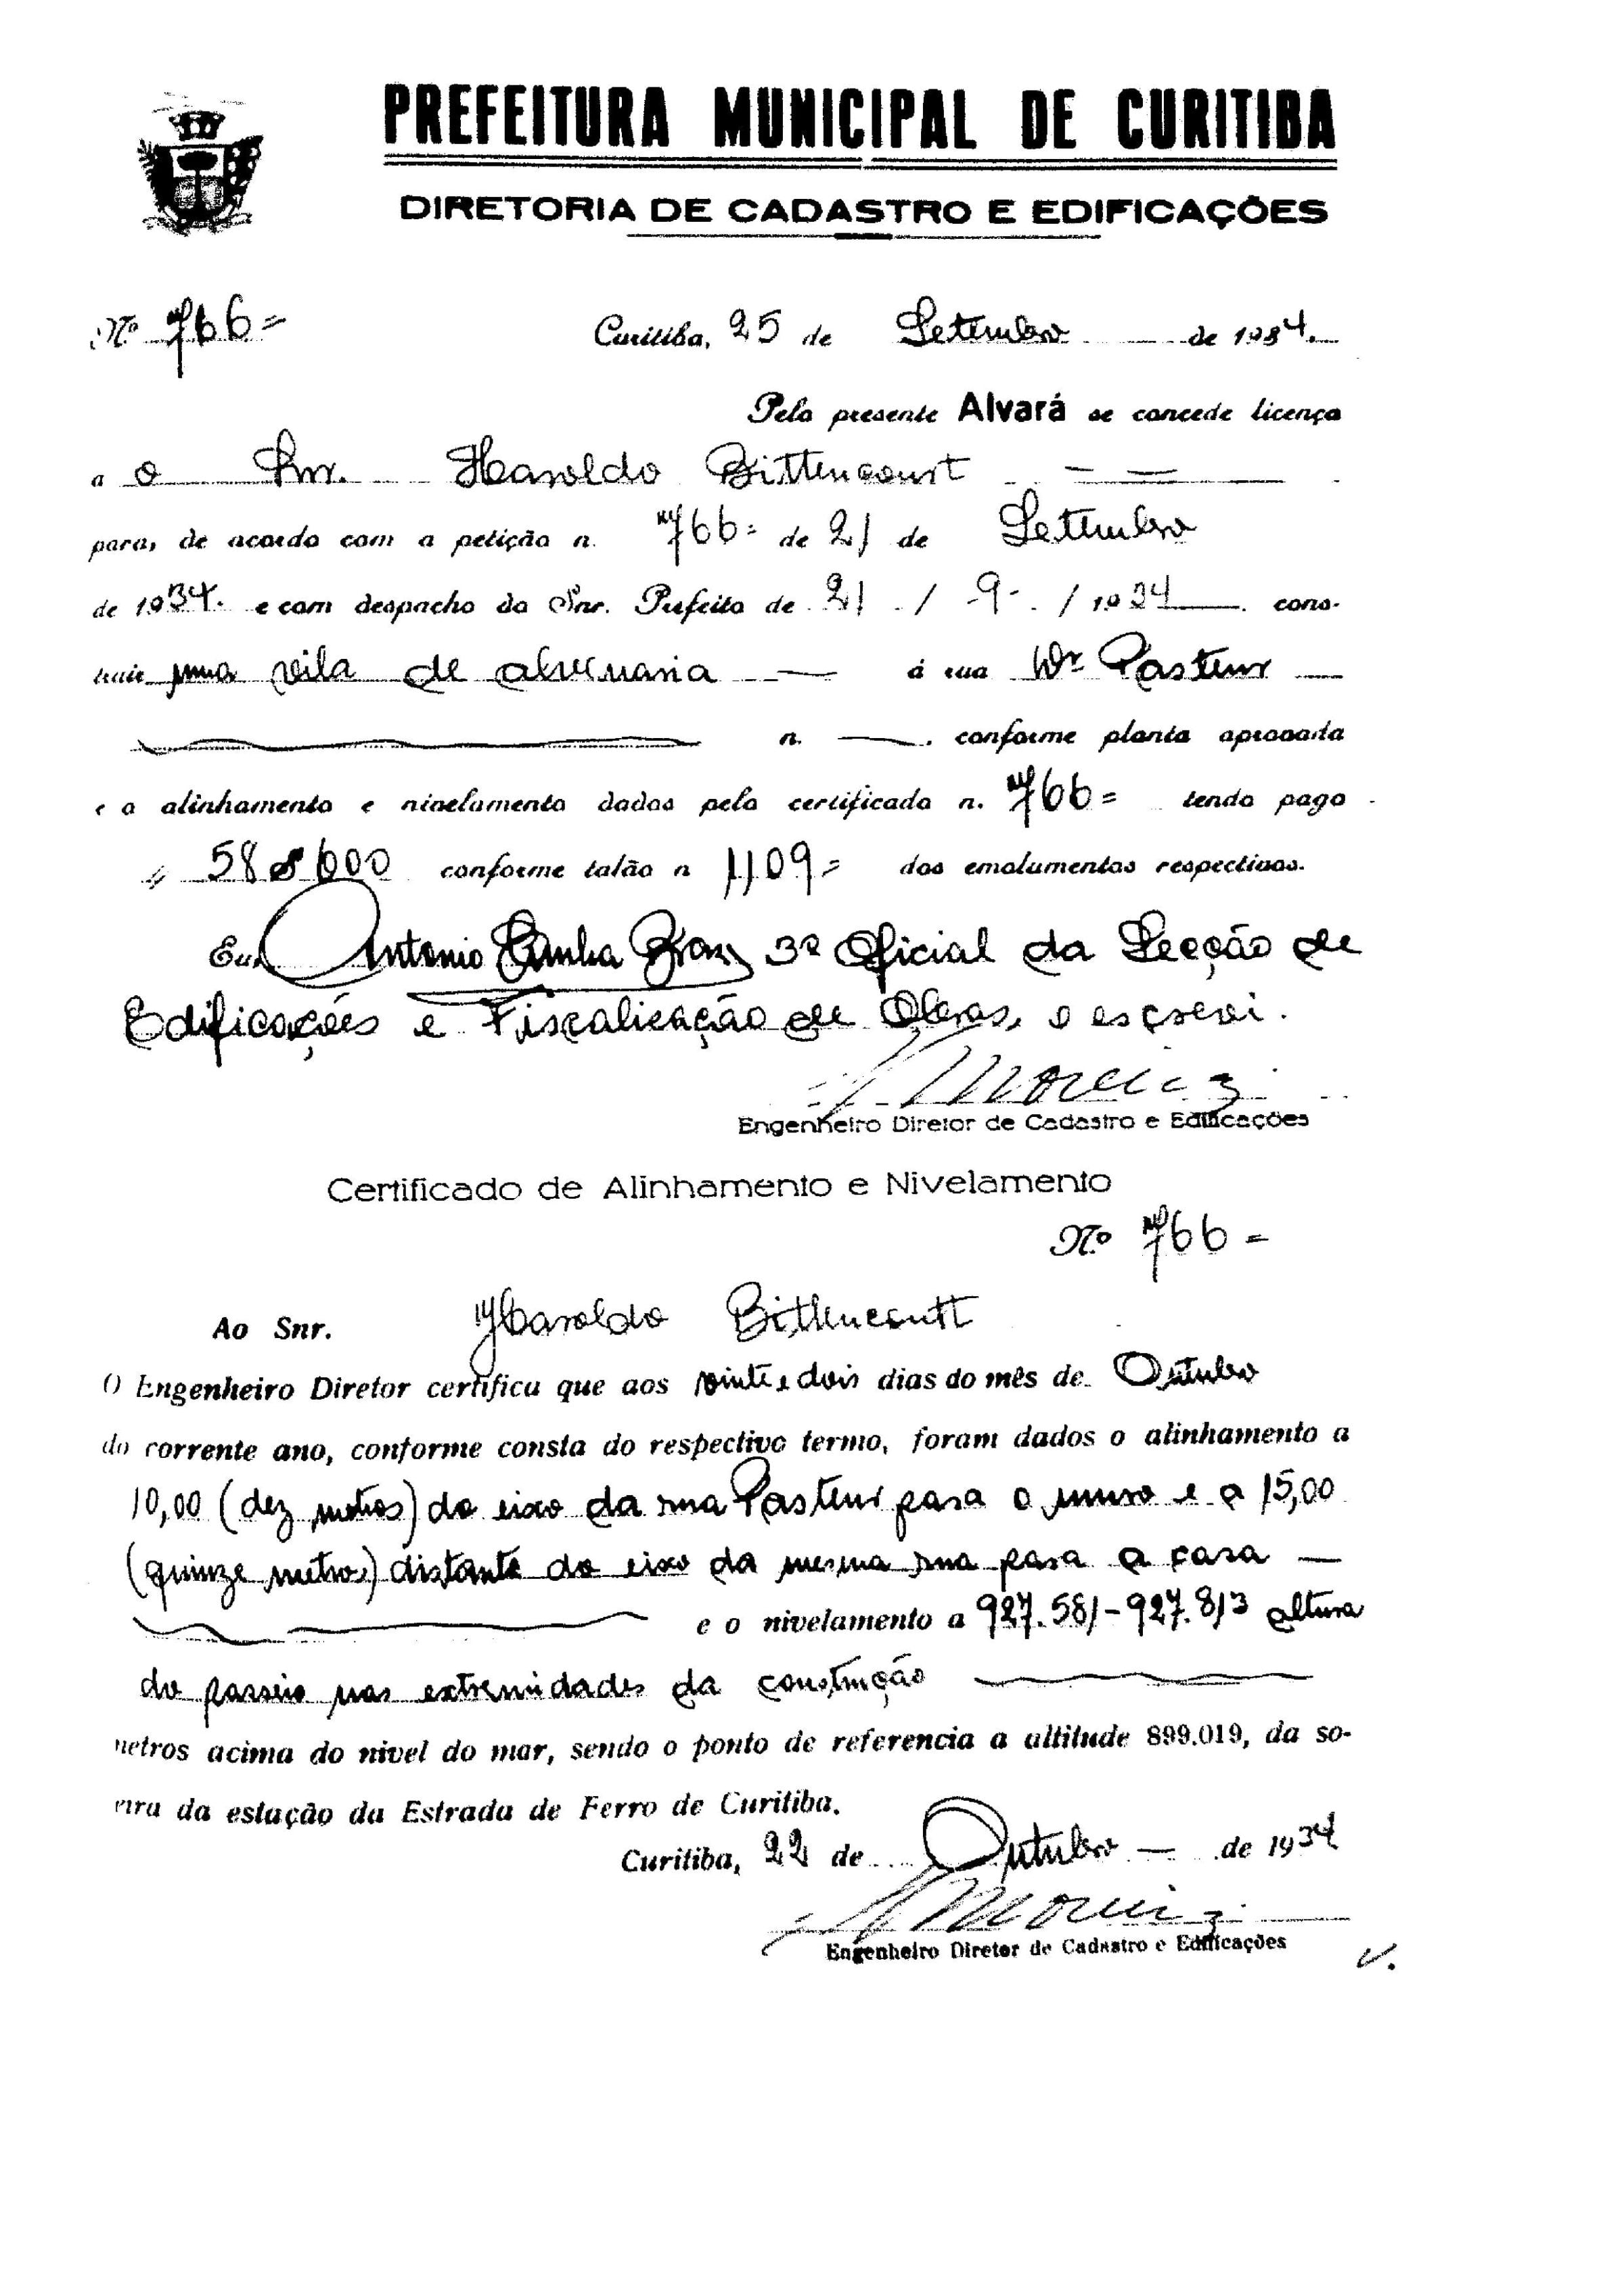 PREFEITURA MUNICIPAL DE CURITIBA
DIRETORIA DE CADASTRO E EDIFICAÇÕES
Nº 766=
Curitiba, 25 de Setembro de 1934.
Pelo presente Alvará se concede licença
a o Snr. Haroldo Bittencourt
para, de acordo com a petição n. 766= de 21 de Setembro
de 1934. e com despacho do Snr. Prefeito de 21 / 9 / 1934 cons-
truir uma vila de alvenaria — á rua Dr. Pasteur
n. — conforme planta aprovada
e o alinhamento e nivelamento dados pelo certificado n. 766= tendo pago
58$600 conforme talão n 1109= dos emolumentos respectivos.
Eu, Antonio Cunha Braz 3º Oficial da Secção de
Edificações e Fiscalização de Obras, o escrevi.
Moreira
Engenheiro Diretor de Cadastro e Edificações
Certificado de Alinhamento e Nivelamento
Nº 766=
Ao Snr. Haroldo Bittencourt
O Engenheiro Diretor certifica que aos vinte e dois dias do mês de Outubro
do corrente ano, conforme consta do respectivo termo, foram dados o alinhamento a
10,00 (dez metros) do eixo da rua Pasteur para o muro e a 15,00
(quinze metros) distante do eixo da mesma rua para a casa —
e o nivelamento a 927.581-927.813 altura
do passeio nas extremidades da construção
metros acima do nivel do mar, sendo o ponto de referencia a altitude 899.019, da so-
eira da estação da Estrada de Ferro de Curitiba.
Curitiba, 22 de Outubro — de 1934
Moreira
Engenheiro Diretor de Cadastro e Edificações
V.